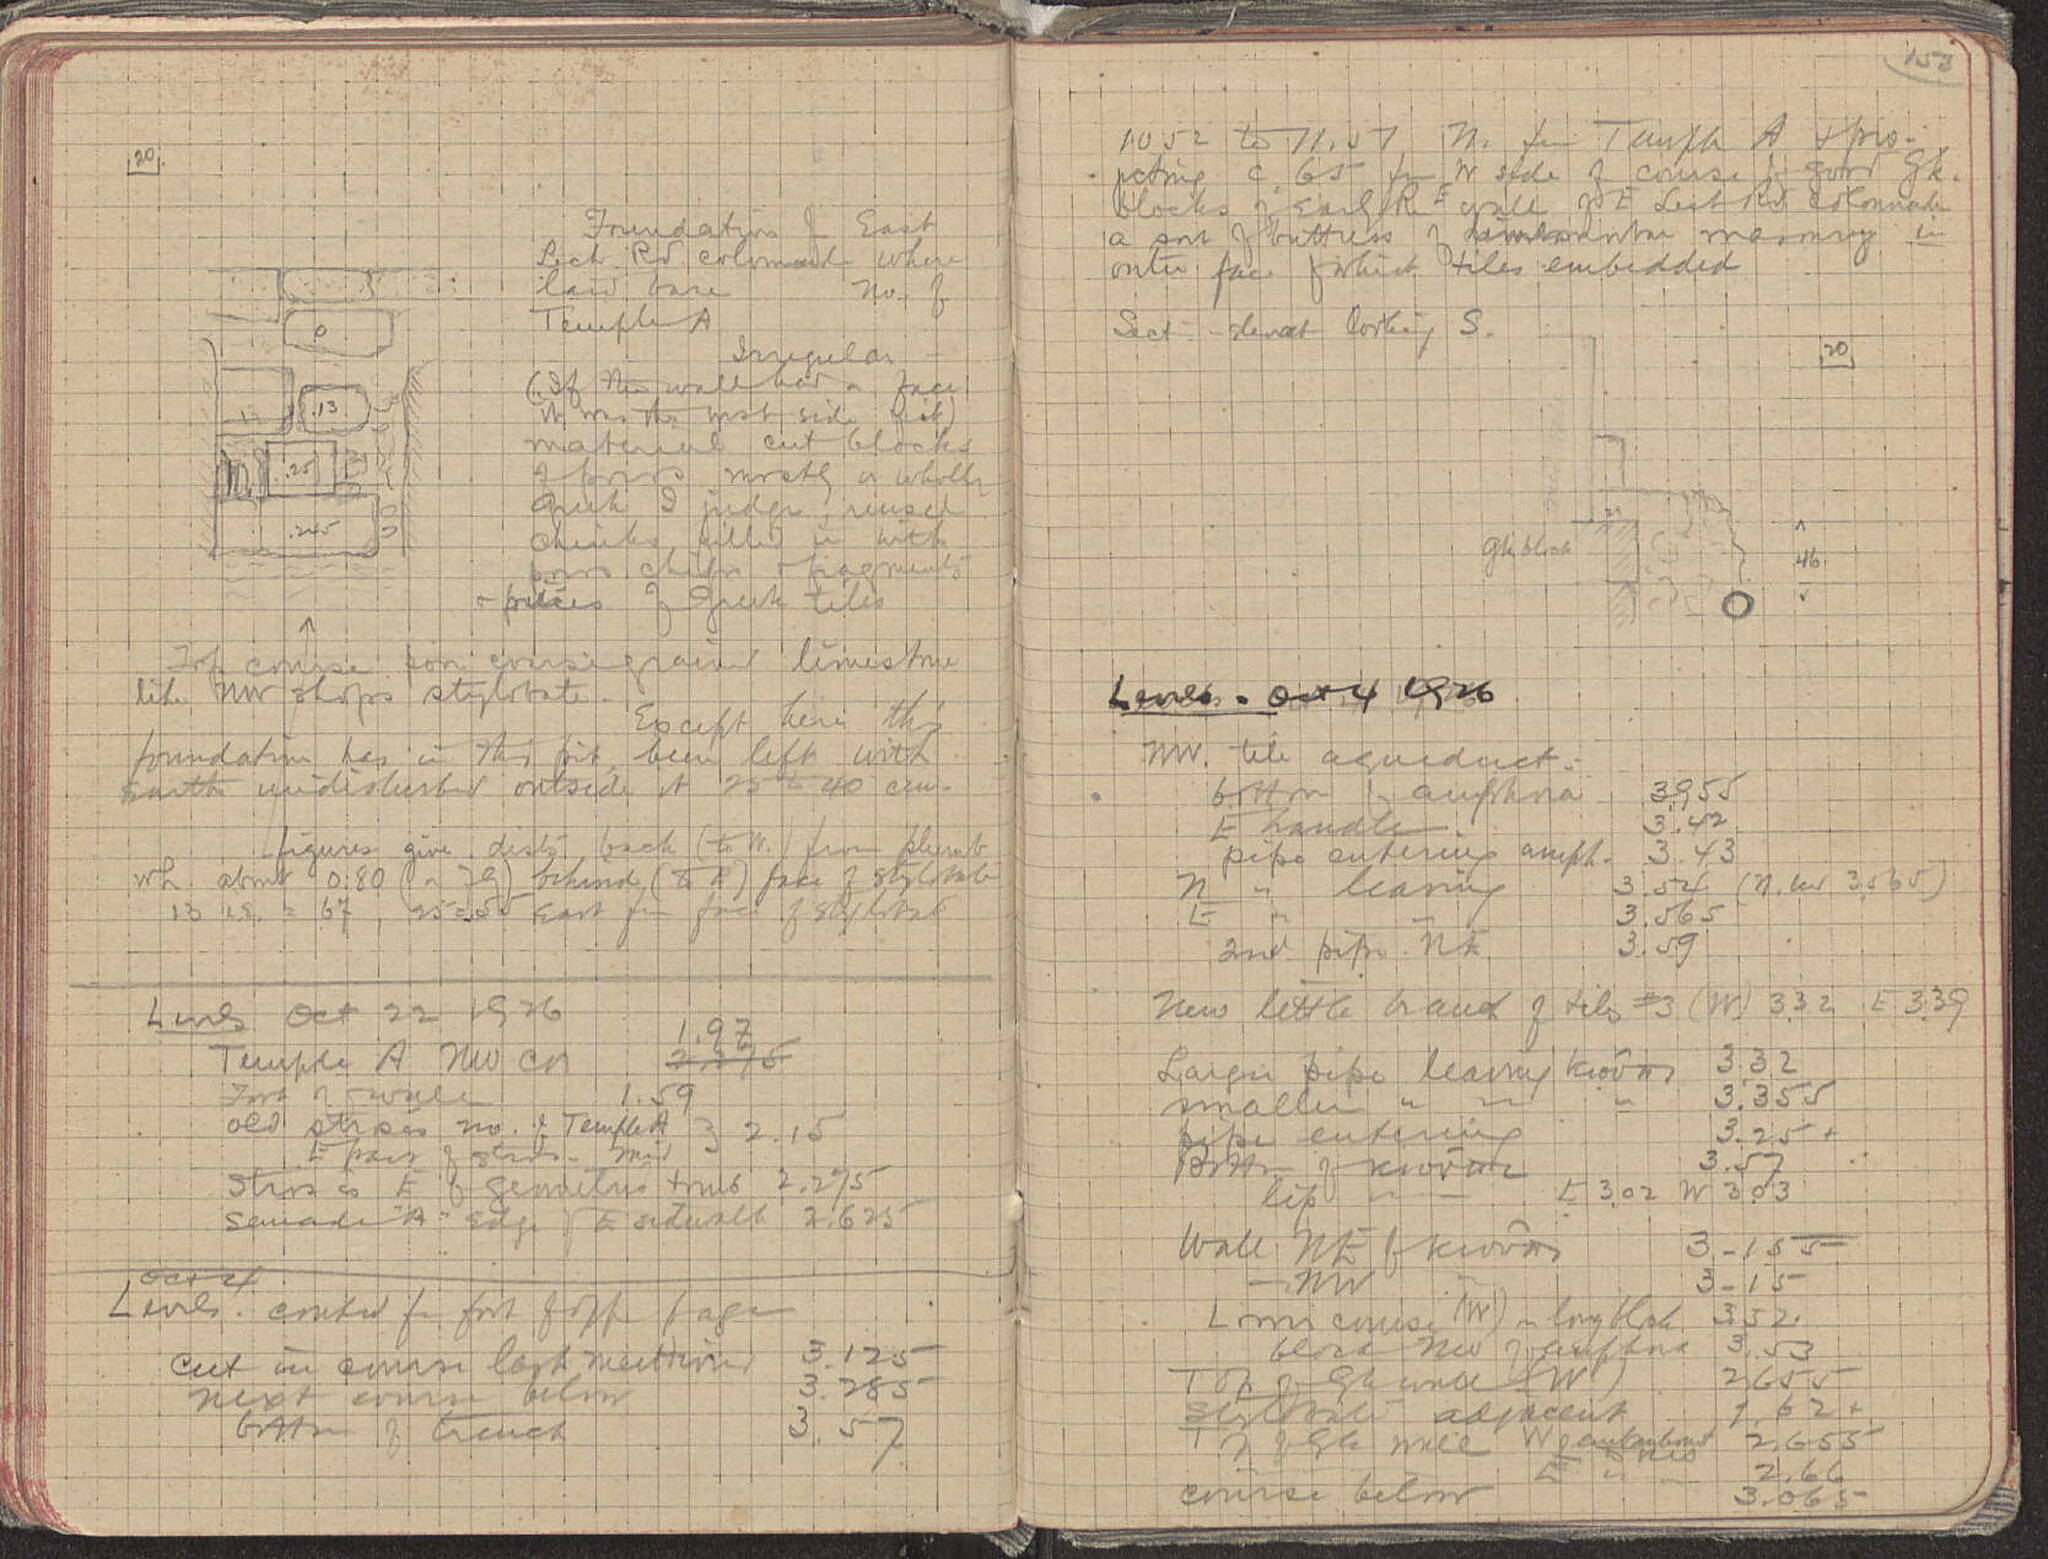 20
Foundation of East
Lech. Rd. colonnade where
laid bare no. of
Temple A
Irregular -
(If this wall had a face
it was the west side
material cut blocks
of poros mostly or wholly
Greek I judge reused
chinks filled in with
poros chips & fragments
& pieces of Greek tiles
0
.13
.25
.245
Top course poor coarse grained limestone
like NW shops stylobate.
Except here this
foundation has in this pit been left with
earth undisturbed outside it 25 to 40 cem.
figures give dists back (to W.) from plumb
wh. about 0.80 (or 79) behind (to E) face of stylobate
13 i.e. = 67, 25 = 55 East fm face of stylobate
Levels Oct 22 1926
1.97
Temple A NW cor 2.275
Foot of wall 1.59
old strosis no. of Temple A } 2.15
E part of strosis mid
Strosis E of geometric tomb 2.275
"A" Edge of E sidewall 2.625
Oct 4
Levels. contd fm foot of opp page
cut in course last mentioned 3.125
next course below 3.285
bottom of trench 3.57
153
10.52 to 11.57 N. fm Temple A & pro-
jecting c. 65 fm W side of course of good Gk.
blocks of Early R. E wall of E Lech Rd colonnade
a sort of buttress of masonry in
outer face of which tiles embedded
Sect. - elevat looking S.
20
Gk block
46
Levels. Oct 4 1926
NW. tile aqueduct.
bottom of amphora 3.955
E handle 3.42
pipe entering amph. 3.43
N " leaving 3.54 (N. end 3.565)
E " " 3.565
2nd pipe NE. 3.59
New little branch of tiles #3 (W) 3.32 E 3.39
Larger pipe leaving 3.32
smaller " " " 3.355
pipe entering 3.25+
Bottom of 3.57
lip " - E 3.02 W 3.03
Wall NE of 3-155
- NW " 3-15
Lower course (W) long block 3.52.
block NW of amphora 3.53
Top of Gk wall (W) 2.655
Stylobate adjacent 1.62+
Top of Gk wall W of 2.655
E " - 2.66
course below 3.065